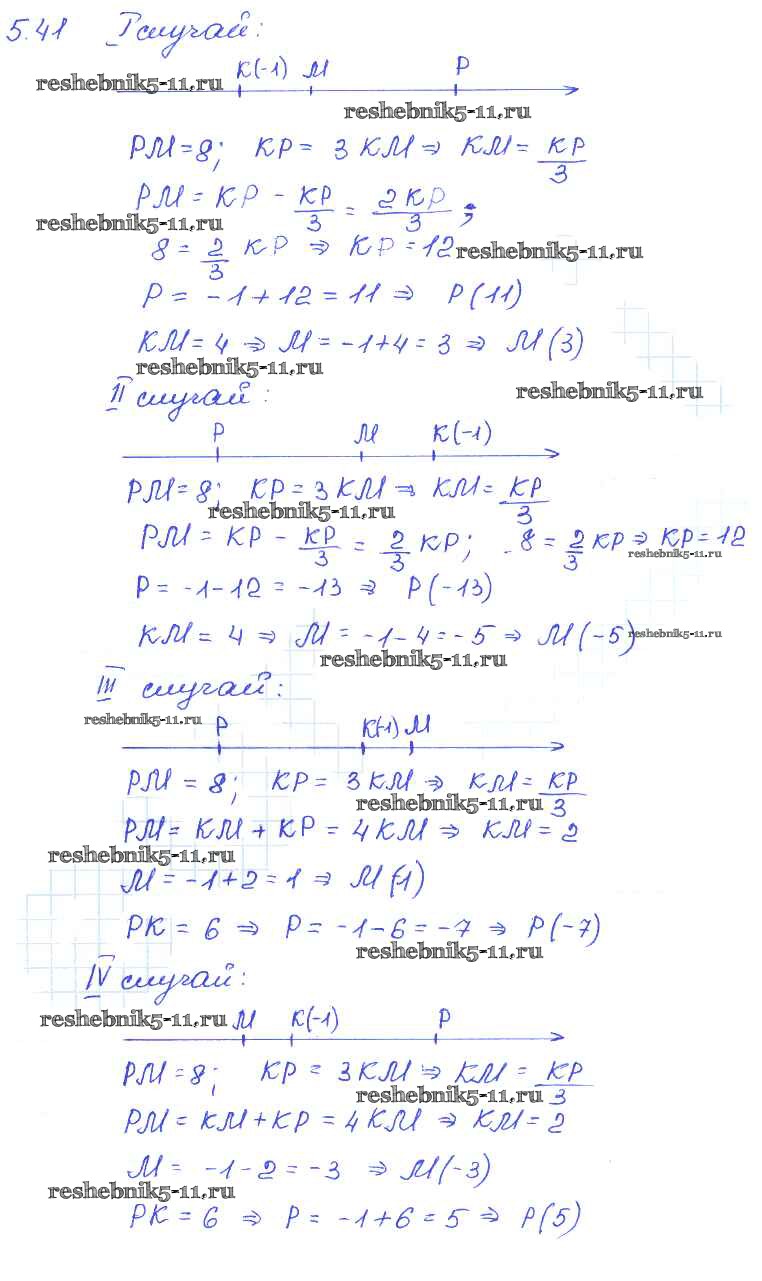 5.41 I случай:
K(-1) M P
reshebnik5-11.ru
reshebnik5-11.ru
PM = 8; KP = 3 KM ⇒ KM = KP/3
PM = KP - KP/3 = 2KP/3;
reshebnik5-11.ru
8 = 2/3 KP ⇒ KP = 12
reshebnik5-11.ru
P = -1 + 12 = 11 ⇒ P(11)
KM = 4 ⇒ M = -1+4 = 3 ⇒ M(3)
reshebnik5-11.ru
II случай:
reshebnik5-11.ru
P M K(-1)
PM = 8; KP = 3 KM ⇒ KM = KP/3
reshebnik5-11.ru
PM = KP - KP/3 = 2/3 KP; 8 = 2/3 KP ⇒ KP = 12
reshebnik5-11.ru
P = -1-12 = -13 ⇒ P(-13)
KM = 4 ⇒ M = -1-4 = -5 ⇒ M(-5)
reshebnik5-11.ru
reshebnik5-11.ru
III случай:
reshebnik5-11.ru
P K(-1) M
PM = 8; KP = 3 KM ⇒ KM = KP/3
reshebnik5-11.ru
PM = KM + KP = 4 KM ⇒ KM = 2
reshebnik5-11.ru
M = -1+2 = 1 ⇒ M(1)
PK = 6 ⇒ P = -1-6 = -7 ⇒ P(-7)
reshebnik5-11.ru
IV случай:
reshebnik5-11.ru
M K(-1) P
PM = 8; KP = 3 KM ⇒ KM = KP/3
reshebnik5-11.ru
PM = KM + KP = 4 KM ⇒ KM = 2
M = -1-2 = -3 ⇒ M(-3)
reshebnik5-11.ru
PK = 6 ⇒ P = -1+6 = 5 ⇒ P(5)